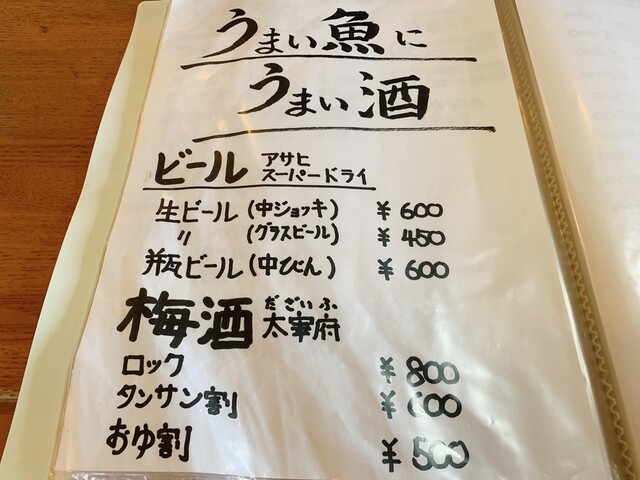 うまい魚に
うまい酒
ビール アサヒ スーパードライ
生ビール (中ジョッキ) ¥600
〃 (グラスビール) ¥450
瓶ビール (中びん) ¥600
梅酒 太宰府 だざいふ
ロック ¥800
タンサン割 ¥600
おゆ割 ¥500